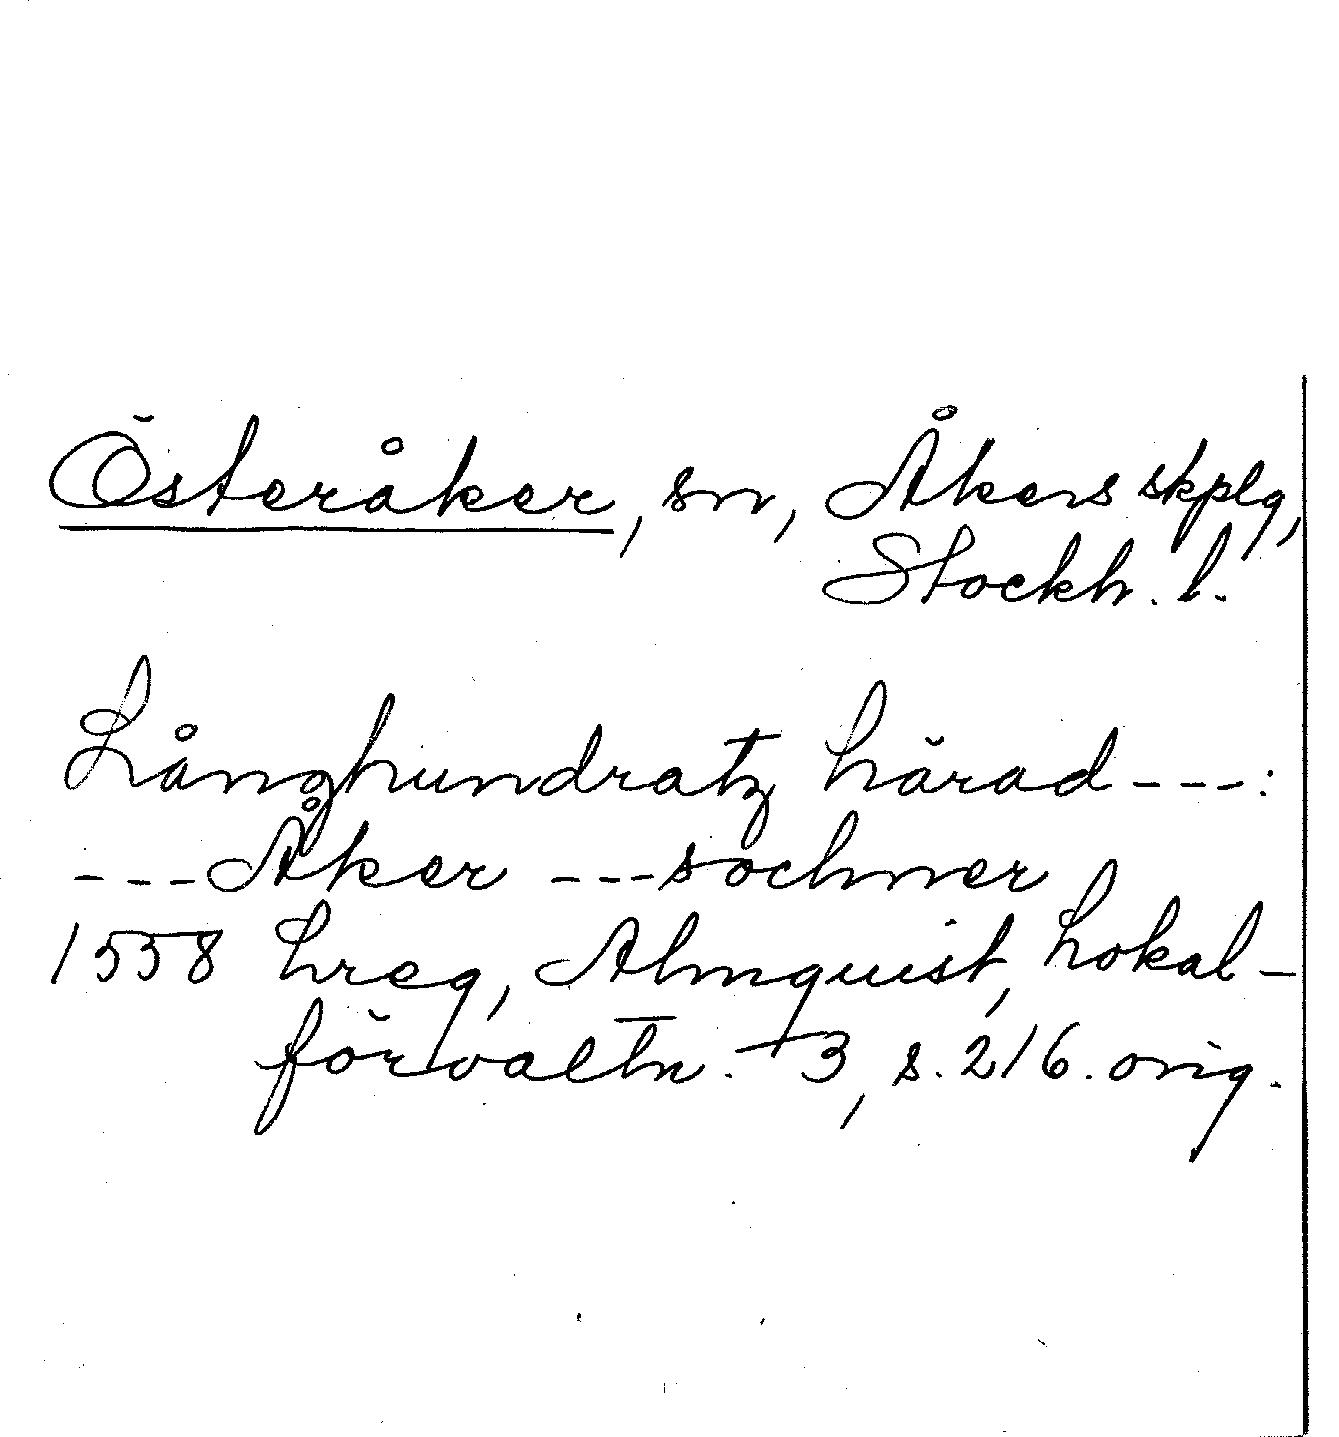 Österåker, sn, Åkers skplg,
Stockh. l.
Långhundratz härad ---:
--- Åker --- sochner
1558 Lreg, Almquist, Lokal-
förvaltn. 3, s. 216. orig.